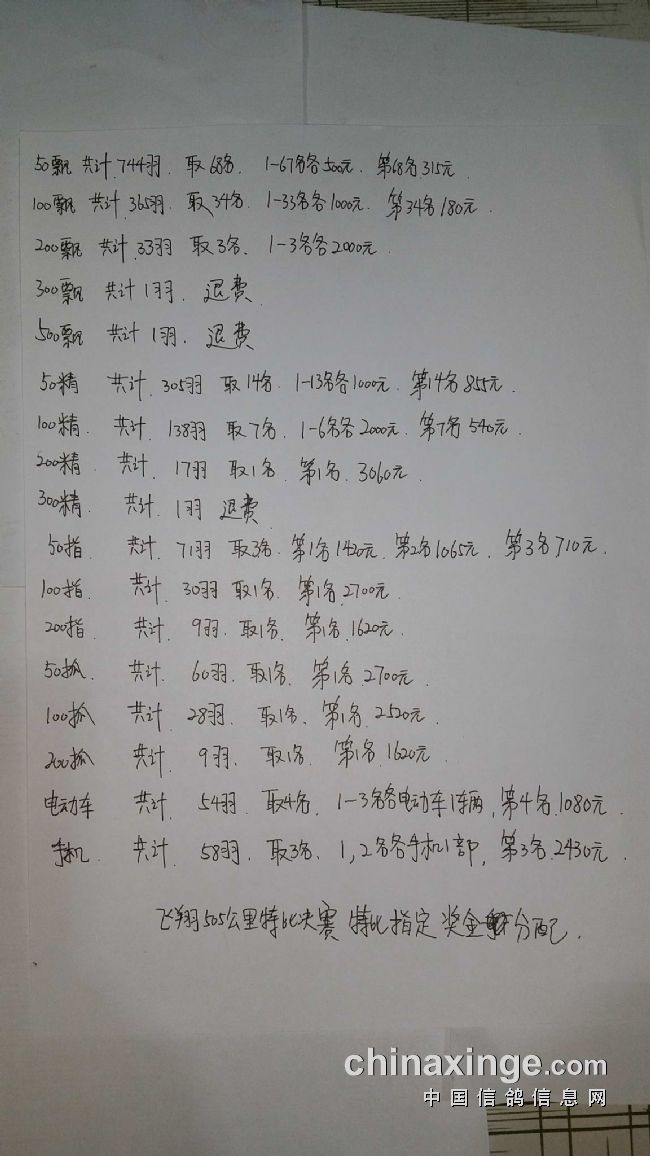 50飘 共计.744羽. 取68名. 1-67名各500元. 第68名315元.
100飘 共计.365羽. 取34名. 1-33名各1000元. 第34名180元.
200飘 共计.33羽 取3名. 1-3名各2000元.
300飘 共计1羽. 退费
500飘 共计1羽. 退费
50精 共计. 305羽 取14名. 1-13名各1000元. 第14名855元.
100精. 共计. 138羽 取7名. 1-6名各2000元. 第7名540元.
200精. 共计. 17羽 取1名. 第1名.3060元.
300精. 共计. 1羽 退费
50指. 共计. 71羽 取3名. 第1名1420元. 第2名1065元. 第3名710元.
100指. 共计. 30羽 取1名. 第1名.2700元.
200指. 共计. 9羽. 取1名. 第1名.1620元.
50抓. 共计. 60羽. 取1名. 第1名2700元.
100抓 共计. 28羽. 取1名. 第1名.2520元.
200抓 共计. 9羽. 取1名. 第1名.1620元.
电动车 共计. 54羽. 取4名. 1-3名各电动车1车辆,第4名.1080元.
手机. 共计. 58羽. 取3名. 1,2名各手机1部,第3名.2430元.
飞翔505公里特比决赛 特比指定 奖金分配.
chinaxinge.com
中国信鸽信息网